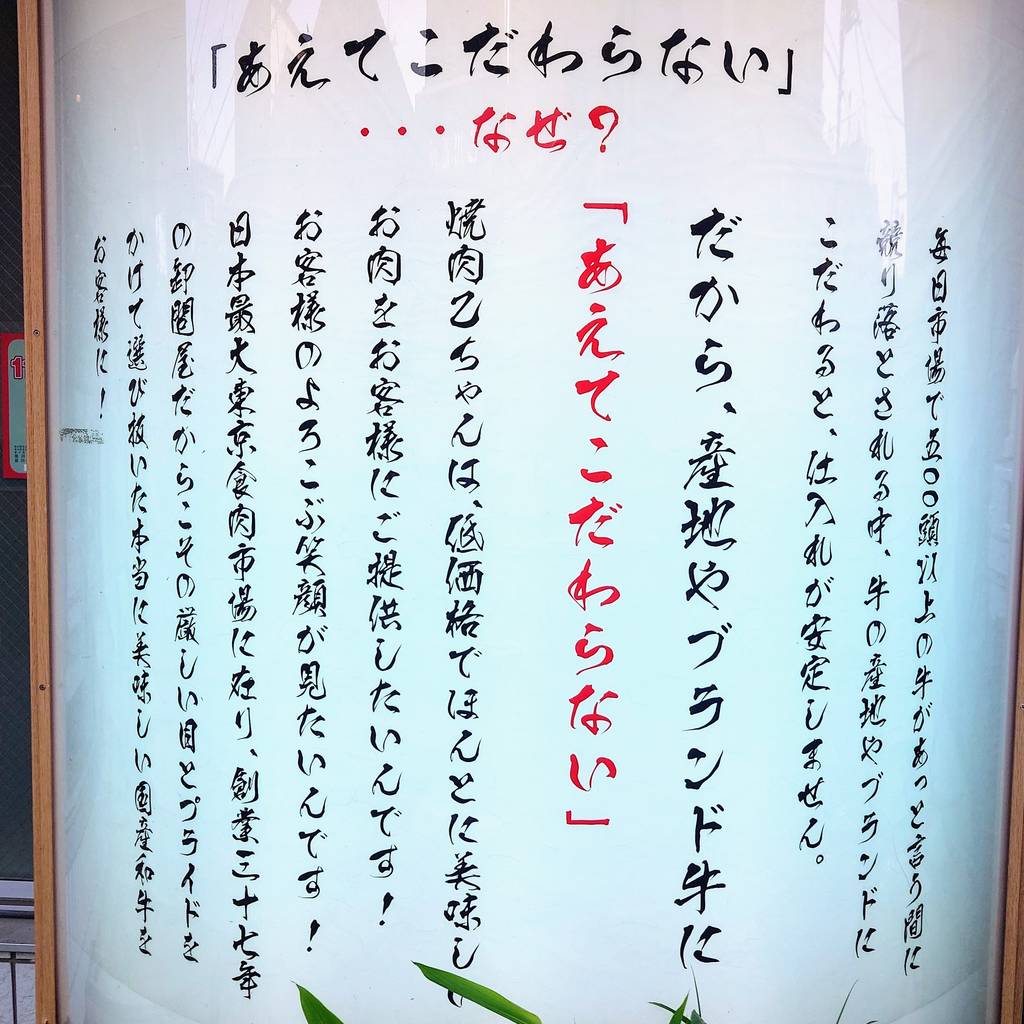 「あえてこだわらない」
・・・なぜ？
毎日市場で五〇〇頭以上の牛があっと言う間に
競り落とされる中、牛の産地やブランドに
こだわると、仕入れが安定しません。
だから、産地やブランド牛に
「あえてこだわらない」
焼肉乙ちゃんは、低価格でほんとに美味しい
お肉をお客様にご提供したいんです！
お客様のよろこぶ笑顔が見たいんです！
日本最大東京食肉市場に在り、創業三十七年
の卸問屋だからこその厳しい目とプライドを
かけて選び抜いた本当に美味しい国産和牛を
お客様に！